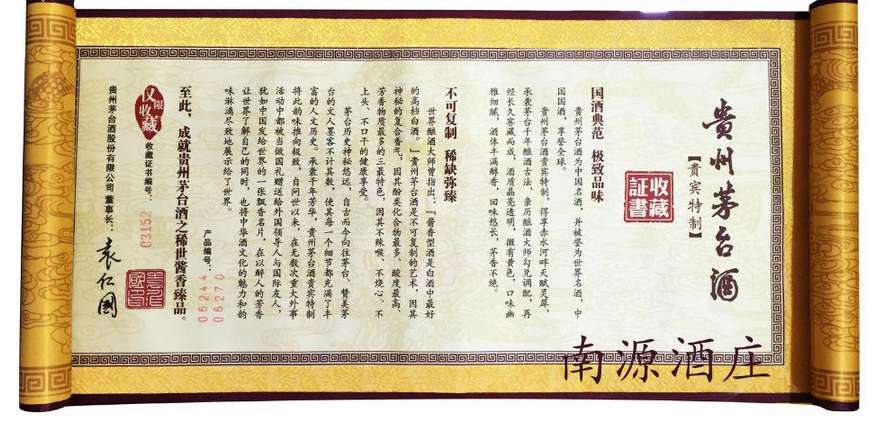 貴州茅台酒
【贵宾特制】
收藏
証書
国酒典范 极致品味
贵州茅台酒为中国名酒，并被誉为世界名酒，中
国国酒，享誉全球。
贵州茅台酒贵宾特制，得享赤水河畔天赋灵犀，
承袭茅台千年酿酒古法，亲历酿酒大师勾兑调配，再
经长久窖藏而成，酒质晶亮透明，微有黄色，口味幽
雅细腻，酒体丰满醇香，回味悠长，茅香不绝。
不可复制 稀缺弥臻
世界酿酒大师曾指出：“酱香型酒是白酒中最好
的高档白酒。”贵州茅台酒是不可复制的艺术，因其
神秘的复合香气，因其酚类化合物最多、酸度最高、
芳香物质最多的三最特色，因其不辣喉、不烧心、不
上头、不口干的健康享受。
茅台历史神秘悠远，自古而今向往茅台、赞美茅
台的文人墨客不计其数，使其每一个细节都充满了丰
富的人文历史。承袭千年芳华，贵州茅台酒贵宾特制
将此韵味推向极致，自问世以来，在无数次重大外事
活动中都被当做国礼赠送给外国领导人与国际友人，
犹如中国发给世界的一张飘香名片，在以醉人的芳香
让世界了解自己的同时，也将中华酒文化的魅力和韵
味淋漓尽致地展示给了世界。
至此，成就贵州茅台酒之稀世酱香臻品。
产品编号：
06244
06270
仅限
收藏
收藏证书编号：
03152
贵州茅台酒股份有限公司 董事长：
袁仁國
南源酒庄